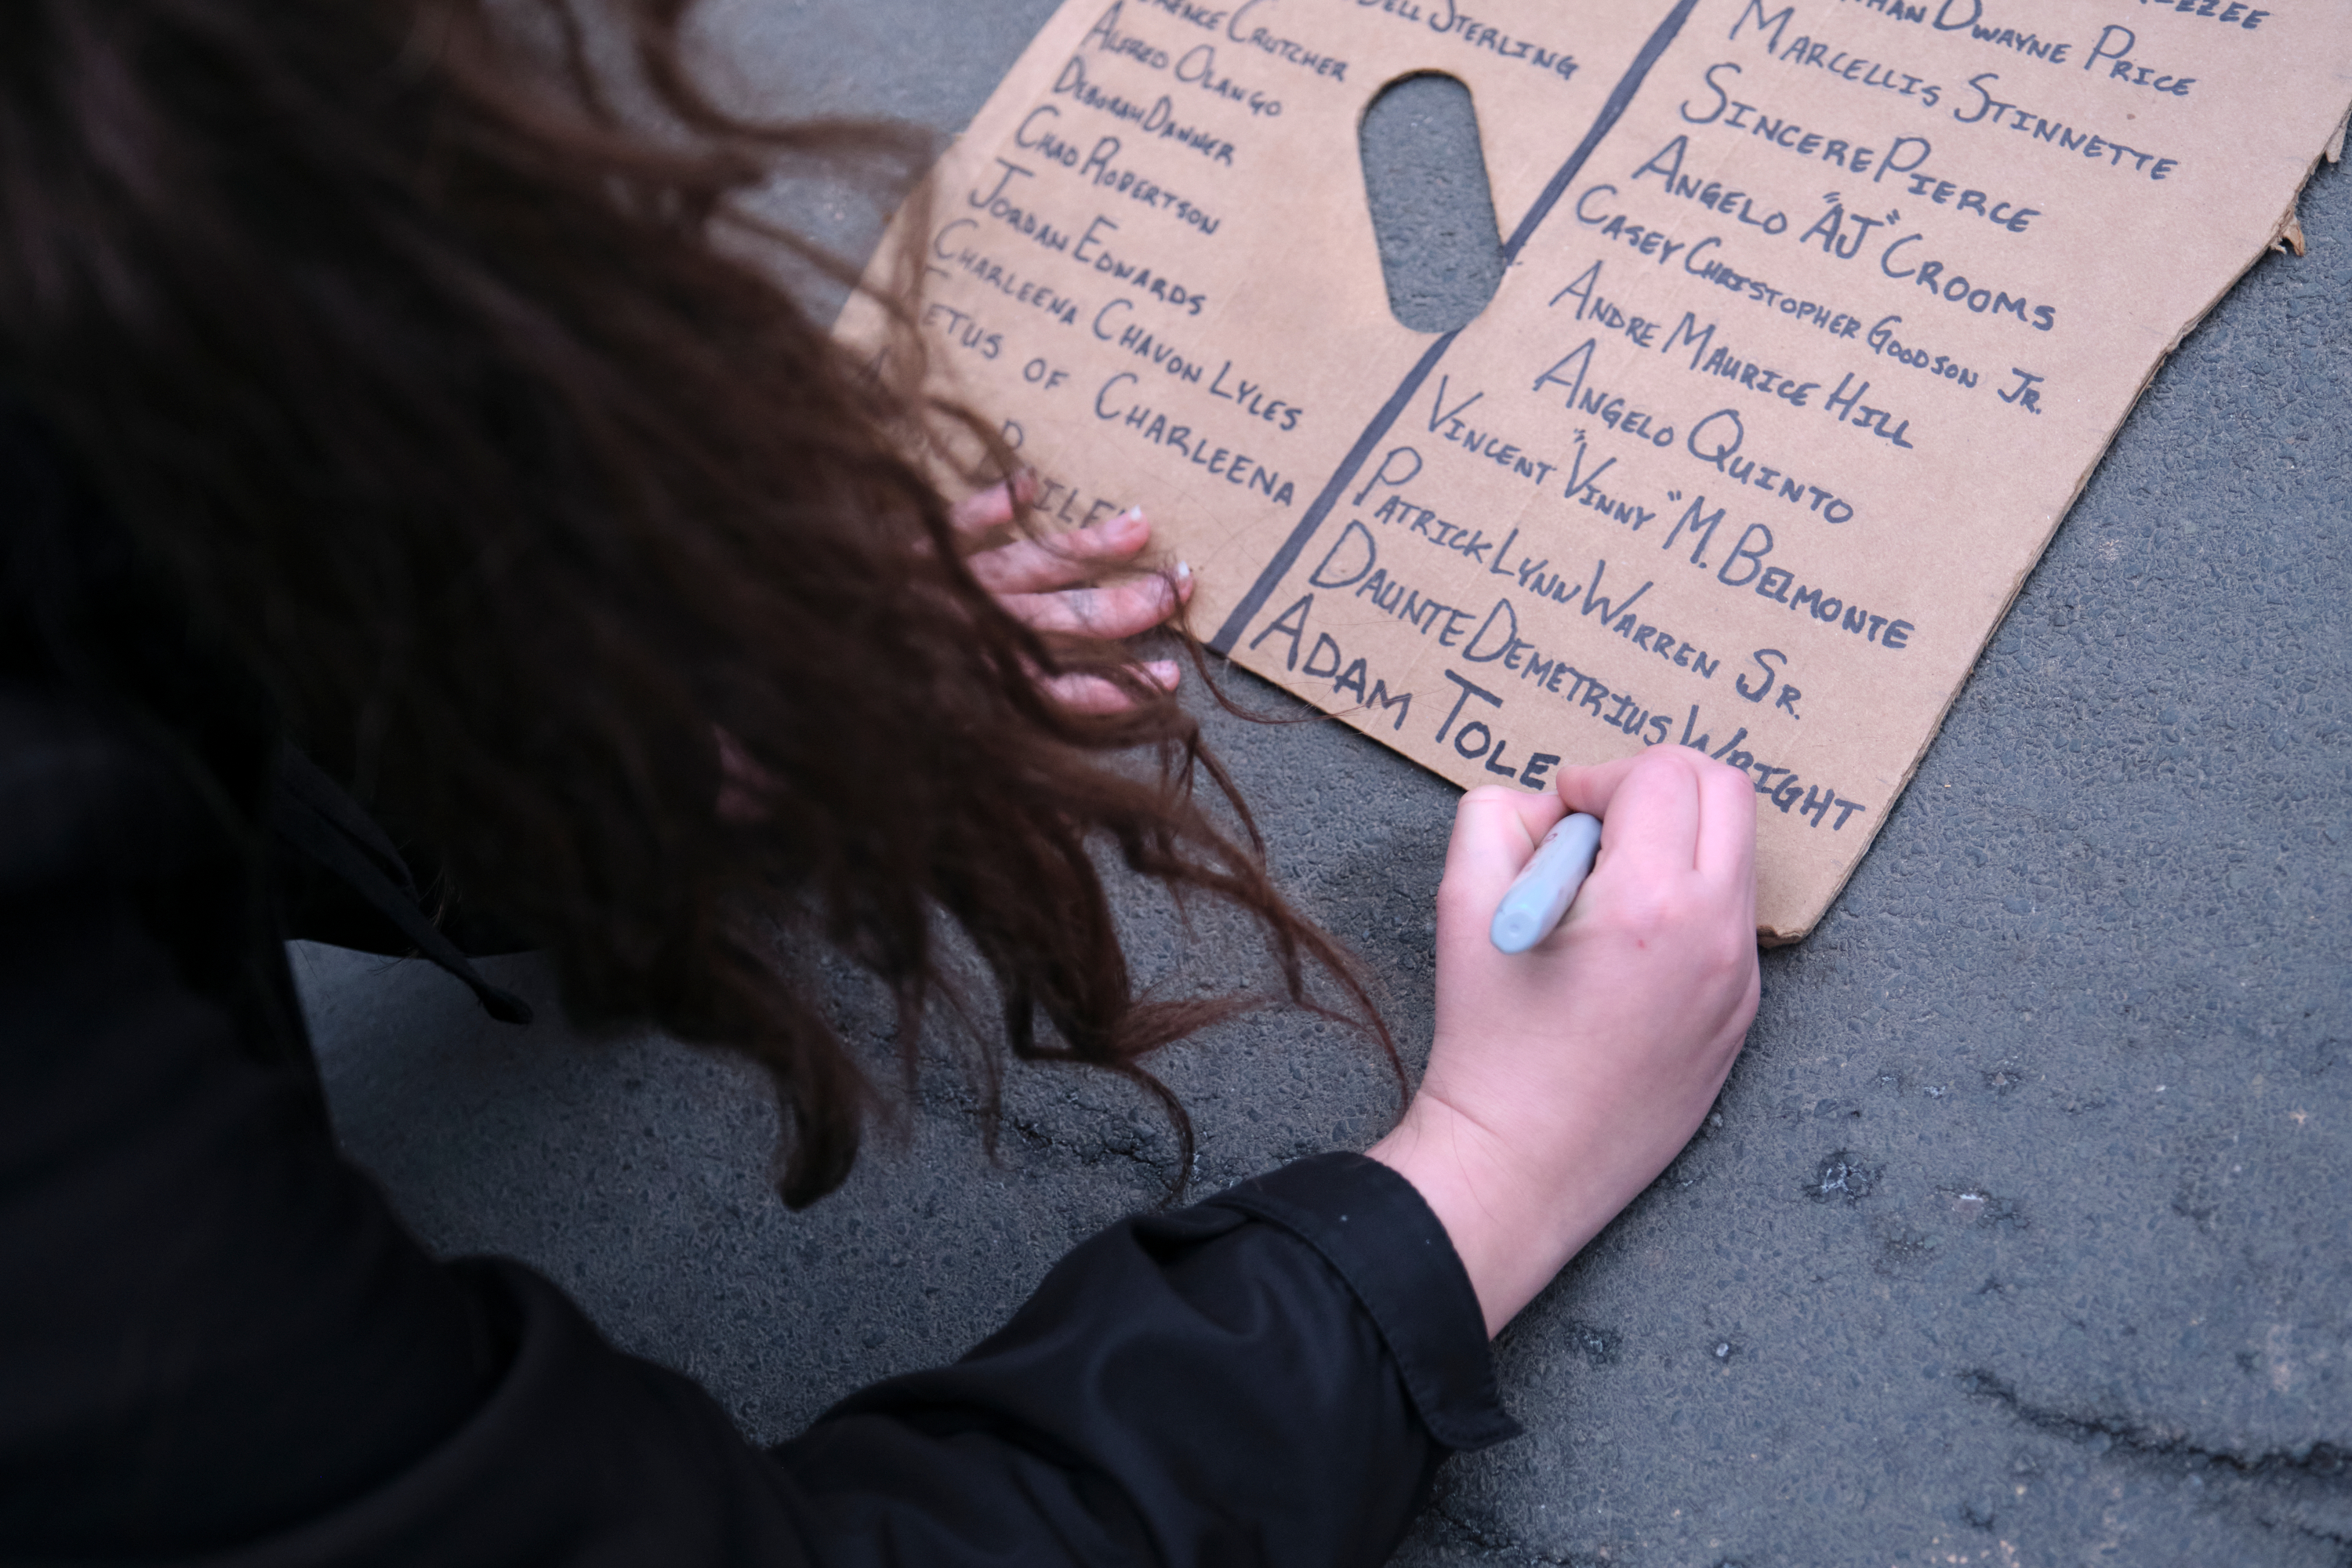 Crutcher
Alfred Olango
Deborah Danner
Chad Robertson
Jordan Edwards
Charleena Chavon Lyles
of Charleena
Sterling
Dwayne Price
Marcellis Stinnette
Sincere Pierce
Angelo "AJ" Crooms
Casey Christopher Goodson Jr.
Andre Maurice Hill
Angelo Quinto
Vincent "Vinny" M. Belmonte
Patrick Lynn Warren Sr.
Daunte Demetrius Wright
Adam Tole